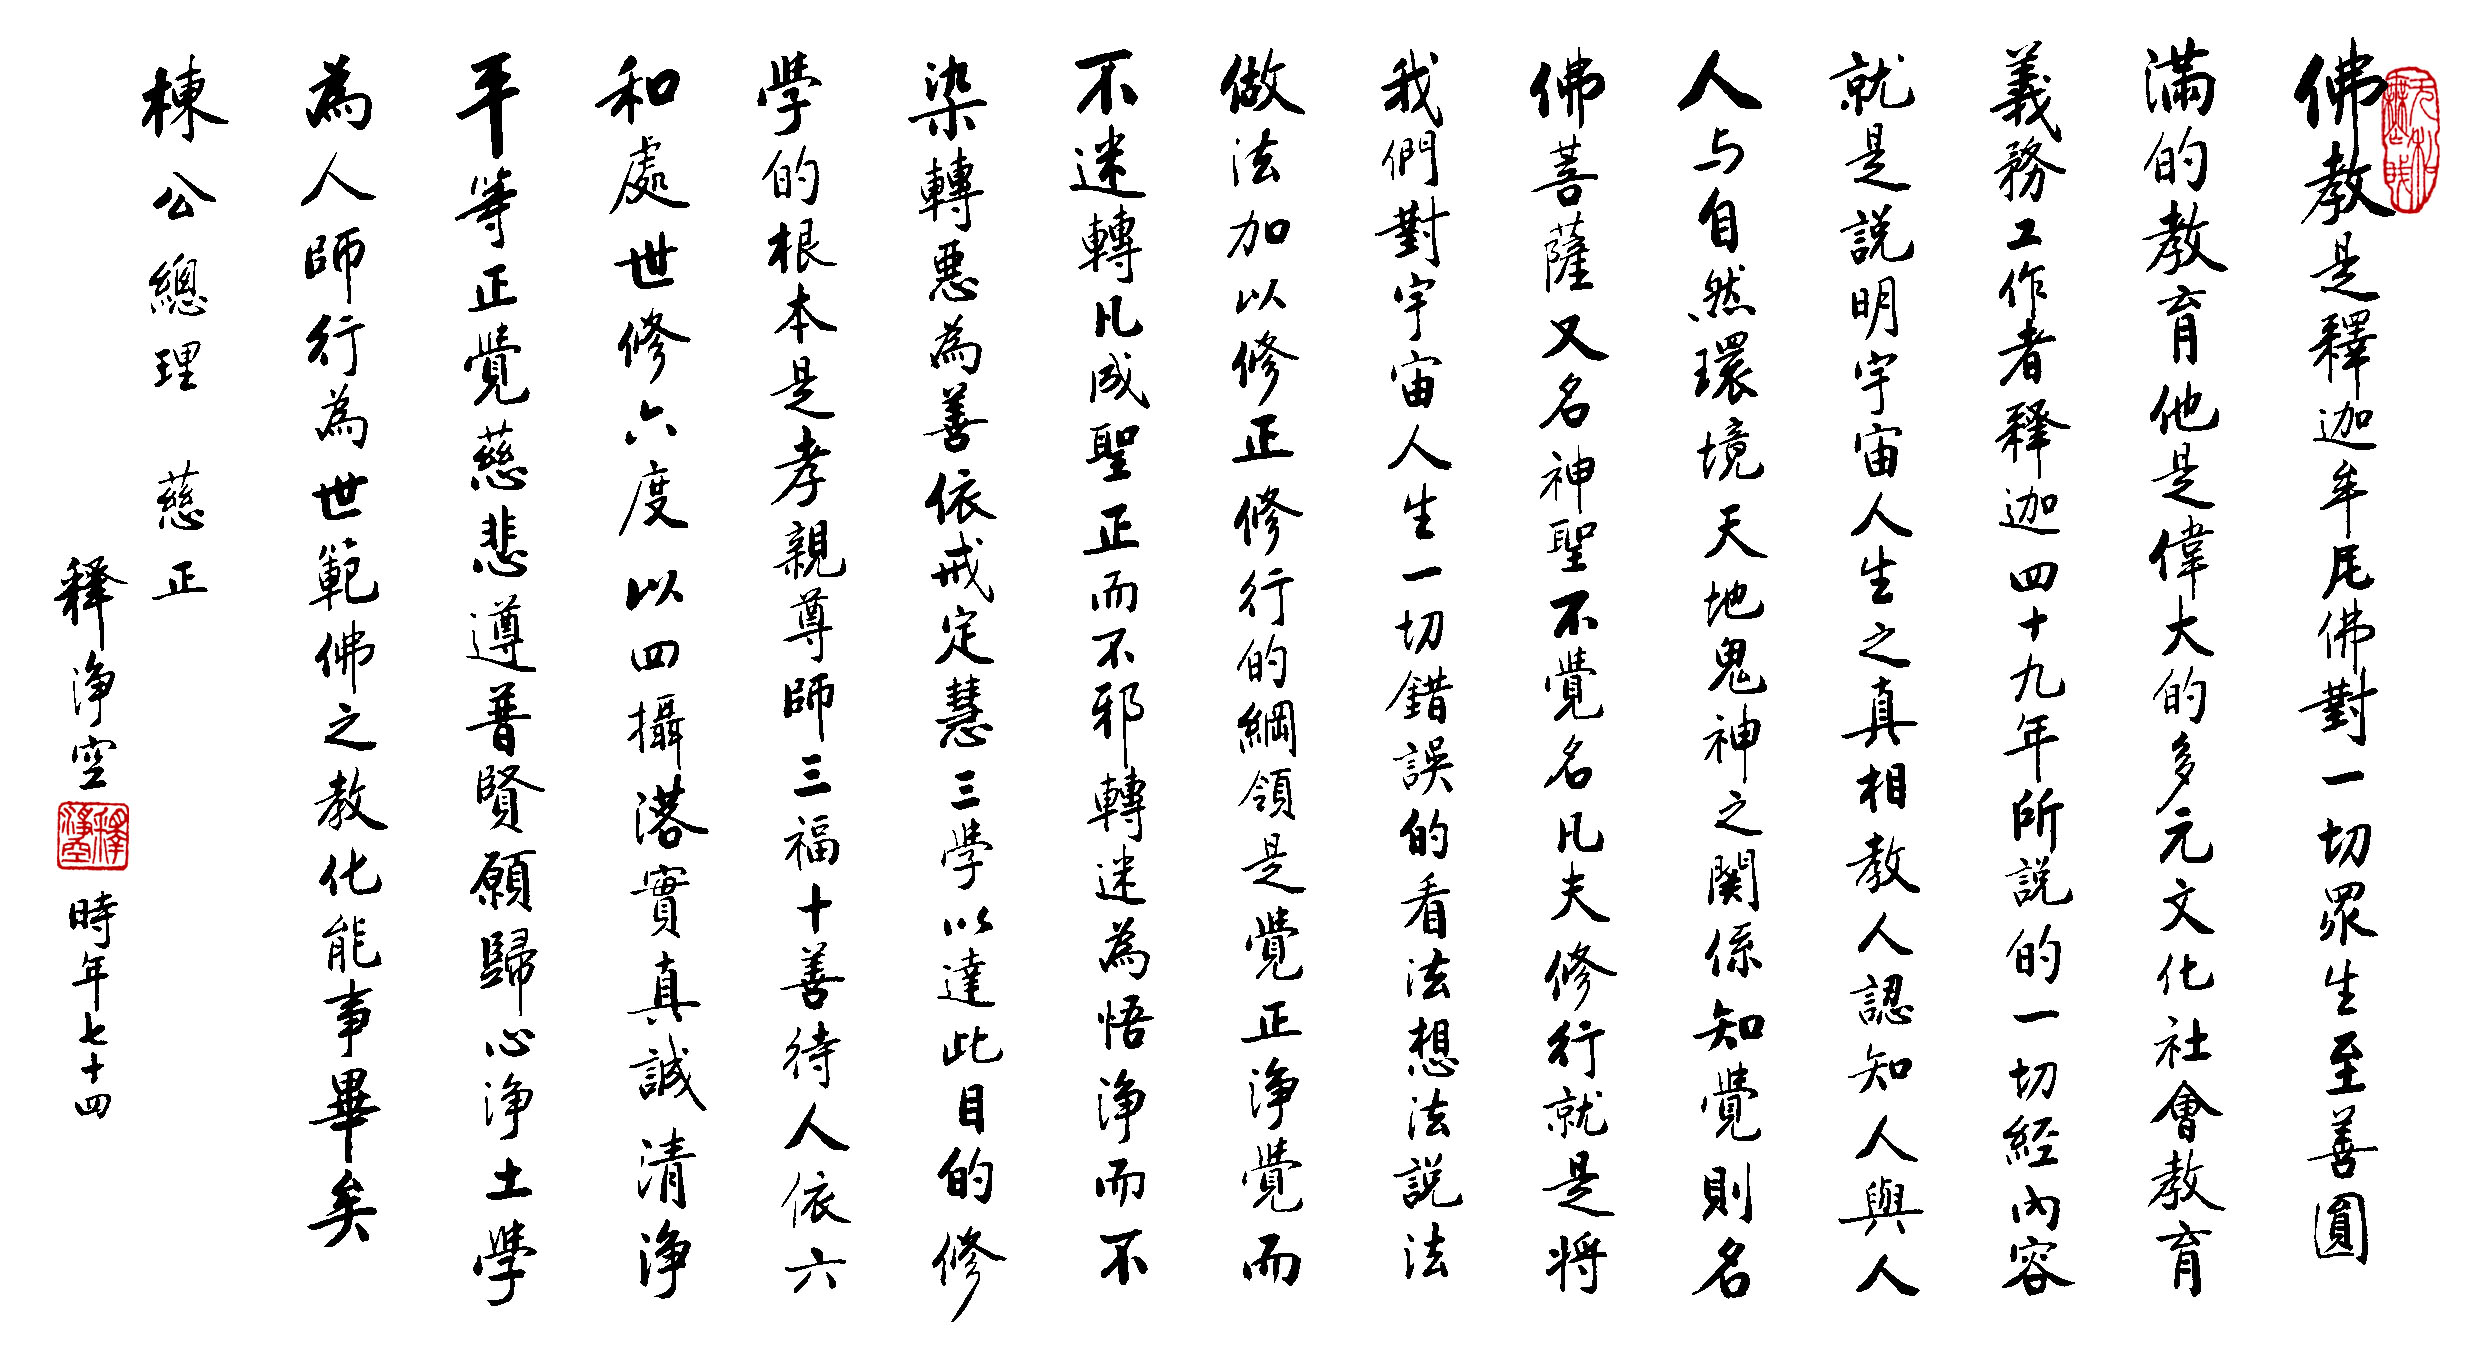 佛教是釋迦牟尼佛對一切眾生至善圓
滿的教育他是偉大的多元文化社會教育
義務工作者釋迦四十九年所説的一切經內容
就是説明宇宙人生之真相教人認知人與人
人与自然環境天地鬼神之関係知覺則名
佛菩薩又名神聖不覺名凡夫修行就是将
我們對宇宙人生一切錯誤的看法想法説法
做法加以修正修行的綱領是覺正淨覺而
不迷轉凡成聖正而不邪轉迷為悟淨而不
染轉惡為善依戒定慧三學以達此目的修
學的根本是孝親尊師三福十善待人依六
和處世修六度以四攝落實真誠清淨
平等正覺慈悲遵普賢願歸心淨土學
為人師行為世範佛之教化能事畢矣
棟公總理 慈正
釋淨空 時年七十四
釋淨空